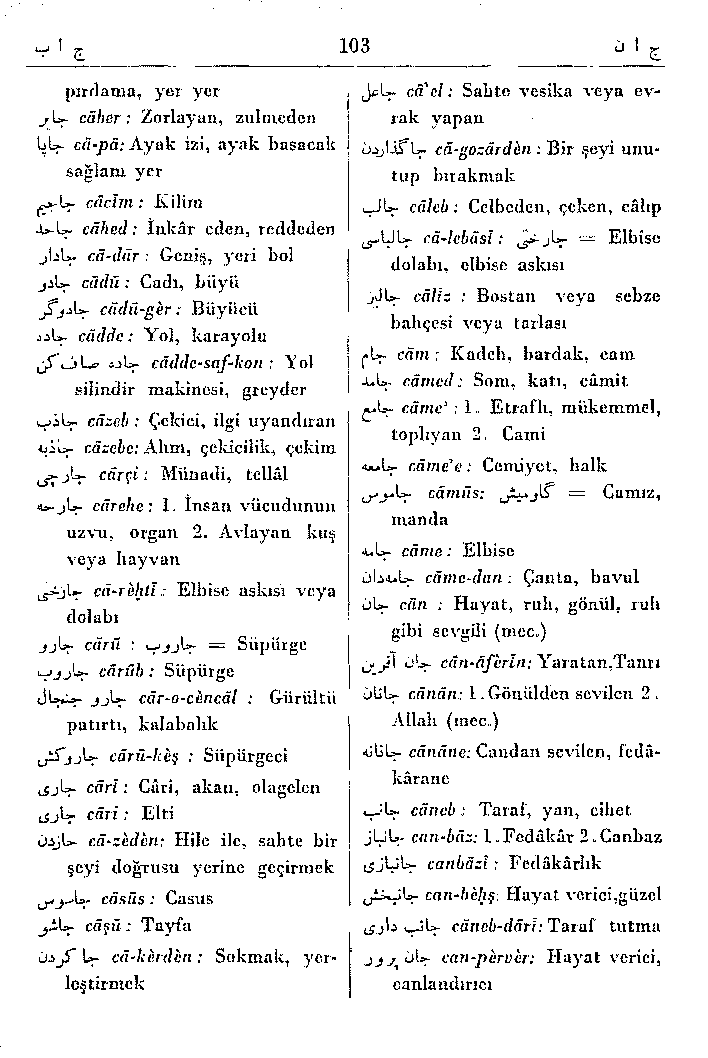 ج ا ب 103 ج ا ن
pırdama, yer yer
جابر cāber : Zorlayan, zulmeden
جاپا cā-pā: Ayak izi, ayak basacak
sağlam yer
جاجیم cācīm : Kilim
جاحد cāhed : İnkâr eden, reddeden
جادار cā-dār : Geniş, yeri bol
جادو cādū : Cadı, büyü
جادوگر cādū-gèr : Büyücü
جاده cādde : Yol, karayolu
جاده صاف کن cādde-saf-kon : Yol
silindir makinesi, greyder
جاذب cāzeb : Çekici, ilgi uyandıran
جاذبه cāzebe: Alım, çekicilik, çekim
جارچی cārçi : Münadi, tellâl
جارحه cārehe : 1. İnsan vücudunun
uzvu, organ 2. Avlayan kuş
veya hayvan
جارختی cā-rèhtī : Elbise askısı veya
dolabı
جارو cārū : جاروب = Süpürge
جاروب cārūb : Süpürge
جار و جنجال cār-o-cèncāl : Gürültü
patırtı, kalabalık
جاروکش cārū-kèş : Süpürgeci
جاری cārī : Câri, akan, olagelen
جاری cāri : Elti
جازدن cā-zèdèn: Hile ile, sahte bir
şeyi doğrusu yerine geçirmek
جاسوس cāsūs : Casus
جاشو cāşū : Tayfa
جا کردن cā-kèrdèn : Sokmak, yer-
leştirmek
جاعل cā'el : Sahte vesika veya ev-
rak yapan
جاگذاردن cā-gozārdèn : Bir şeyi unu-
tup bırakmak
جالب cāleb : Celbeden, çeken, câlıp
جالباسی cā-lebāsī : جارختی = Elbise
dolabı, elbise askısı
جالیز cālīz : Bostan veya sebze
bahçesi veya tarlası
جام cām : Kadeh, bardak, cam
جامد cāmed : Som, katı, câmit
جامع cāme' : 1. Etraflı, mükemmel,
toplıyan 2. Cami
جامعه cāme'e : Cemiyet, halk
جاموس cāmūs: گاومیش = Camız,
manda
جامه cāme : Elbise
جامه‌دان cāme-dan : Çanta, bavul
جان cān : Hayat, ruh, gönül, ruh
gibi sevgili (mec.)
جان آفرین cān-āferīn: Yaratan,Tanrı
جانان cānān: 1.Gönülden sevilen 2.
Allah (mec.)
جانانه cānāne: Candan sevilen, fedâ-
kârane
جانب cāneb : Taraf, yan, cihet
جانباز can-bāz: 1.Fedâkâr 2.Canbaz
جانبازی canbāzī : Fedâkârlık
جانبخش can-bèhş: Hayat verici,güzel
جانب داری cāneb-dārī: Taraf tutma
جان پرور can-pèrvèr: Hayat verici,
canlandırıcı